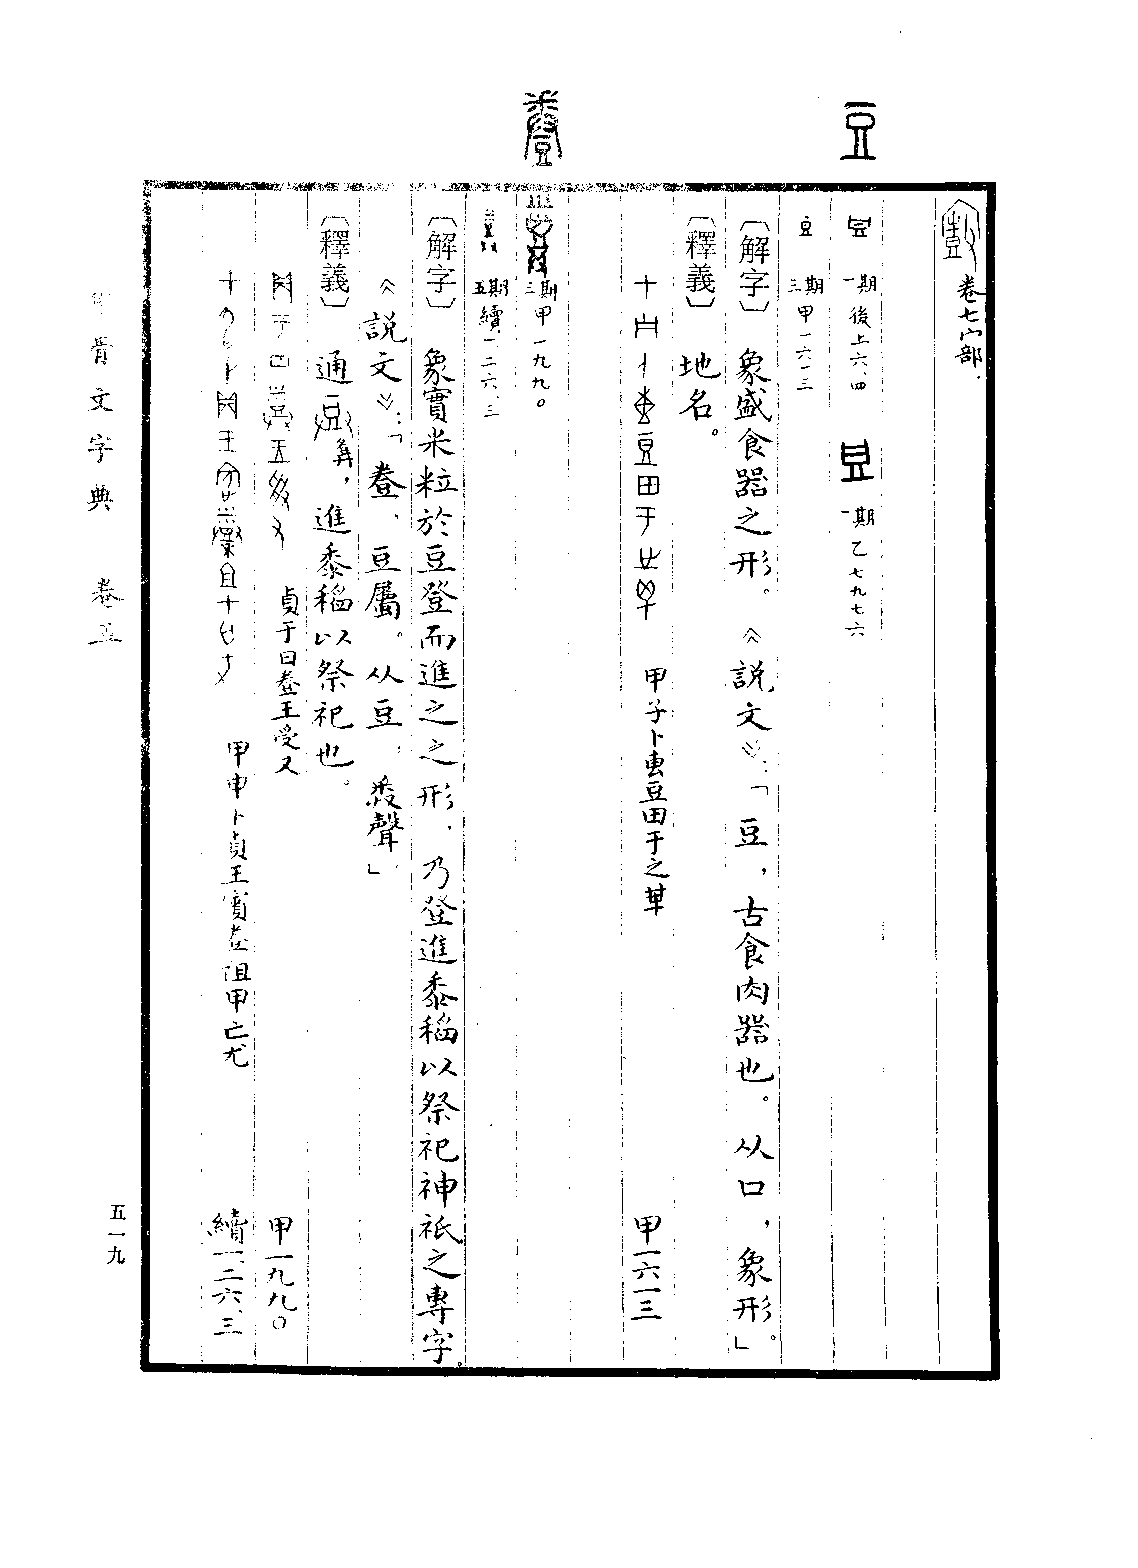 豆
卷七宀部
一期後上六.四
一期乙七九七六
三期甲一六一三
〔解字〕象盛食器之形。《說文》:「豆,古食肉器也。从口,象形。」
〔釋義〕
地名。
甲子卜叀豆田于之
甲一六一三
三期甲一九九〇
五期續一.二六.三
〔解字〕象實米粒於豆登而進之之形,乃登進黍稻以祭祀神祇之專字。
《說文》:「豋,豆屬。从豆,𢍏聲」
〔釋義〕通彝,進黍稻以祭祀也。
貞于日豋王受又
甲一九九〇
甲申卜貞王賓豋祖甲亡尤
續一.二六.三
甲骨文字典 卷五
五一九